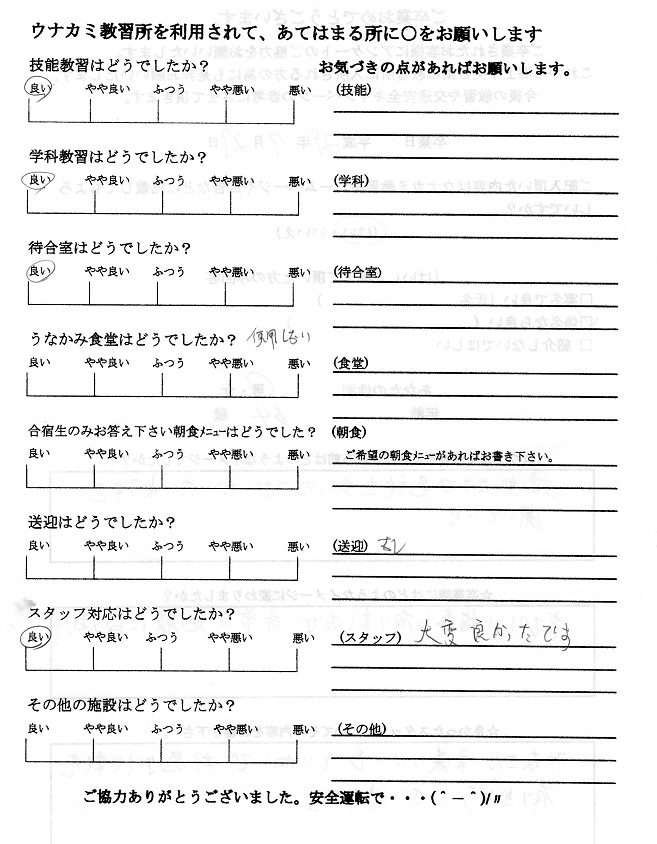 ウナカミ教習所を利用されて、あてはまる所に○をお願いします
技能教習はどうでしたか?
お気づきの点があればお願いします。
良い やや良い ふつう やや悪い 悪い
(技能)
学科教習はどうでしたか?
良い やや良い ふつう やや悪い 悪い
(学科)
待合室はどうでしたか?
良い やや良い ふつう やや悪い 悪い
(待合室)
うなかみ食堂はどうでしたか? 使用しない
良い やや良い ふつう やや悪い 悪い
(食堂)
合宿生のみお答え下さい朝食メニューはどうでした?
(朝食)
良い やや良い ふつう やや悪い 悪い
ご希望の朝食メニューがあればお書き下さい。
送迎はどうでしたか?
良い やや良い ふつう やや悪い 悪い
(送迎) なし
スタッフ対応はどうでしたか?
良い やや良い ふつう やや悪い 悪い
(スタッフ) 大変良かったです
その他の施設はどうでしたか?
良い やや良い ふつう やや悪い 悪い
(その他)
ご協力ありがとうございました。安全運転で・・・(＾－＾)/〃